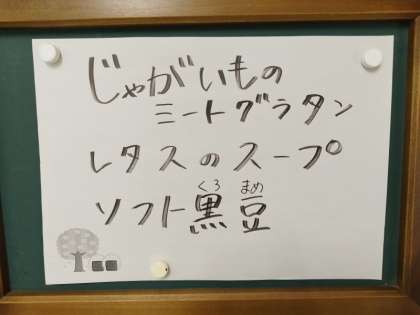 じゃがいもの
ミートグラタン
レタスのスープ
ソフト黒豆
くろ まめ